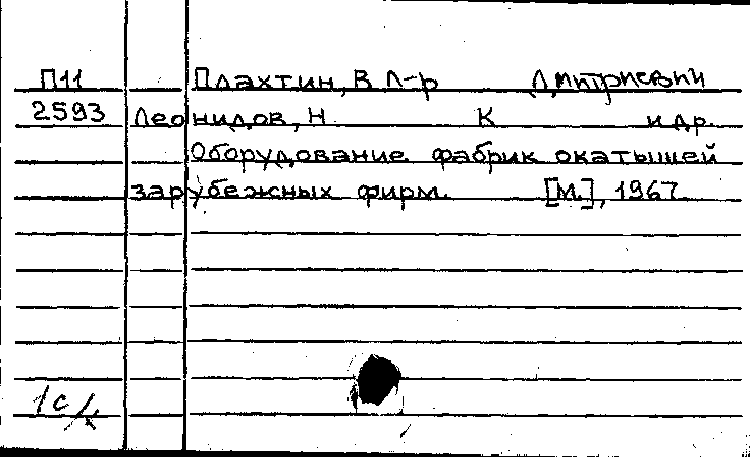 П11 Плахтин, В л-р Дмитриевич
2593 Леонидов, Н К и др.
Оборудование фабрик окатышей
зарубежных фирм. [М.], 1967
1с/